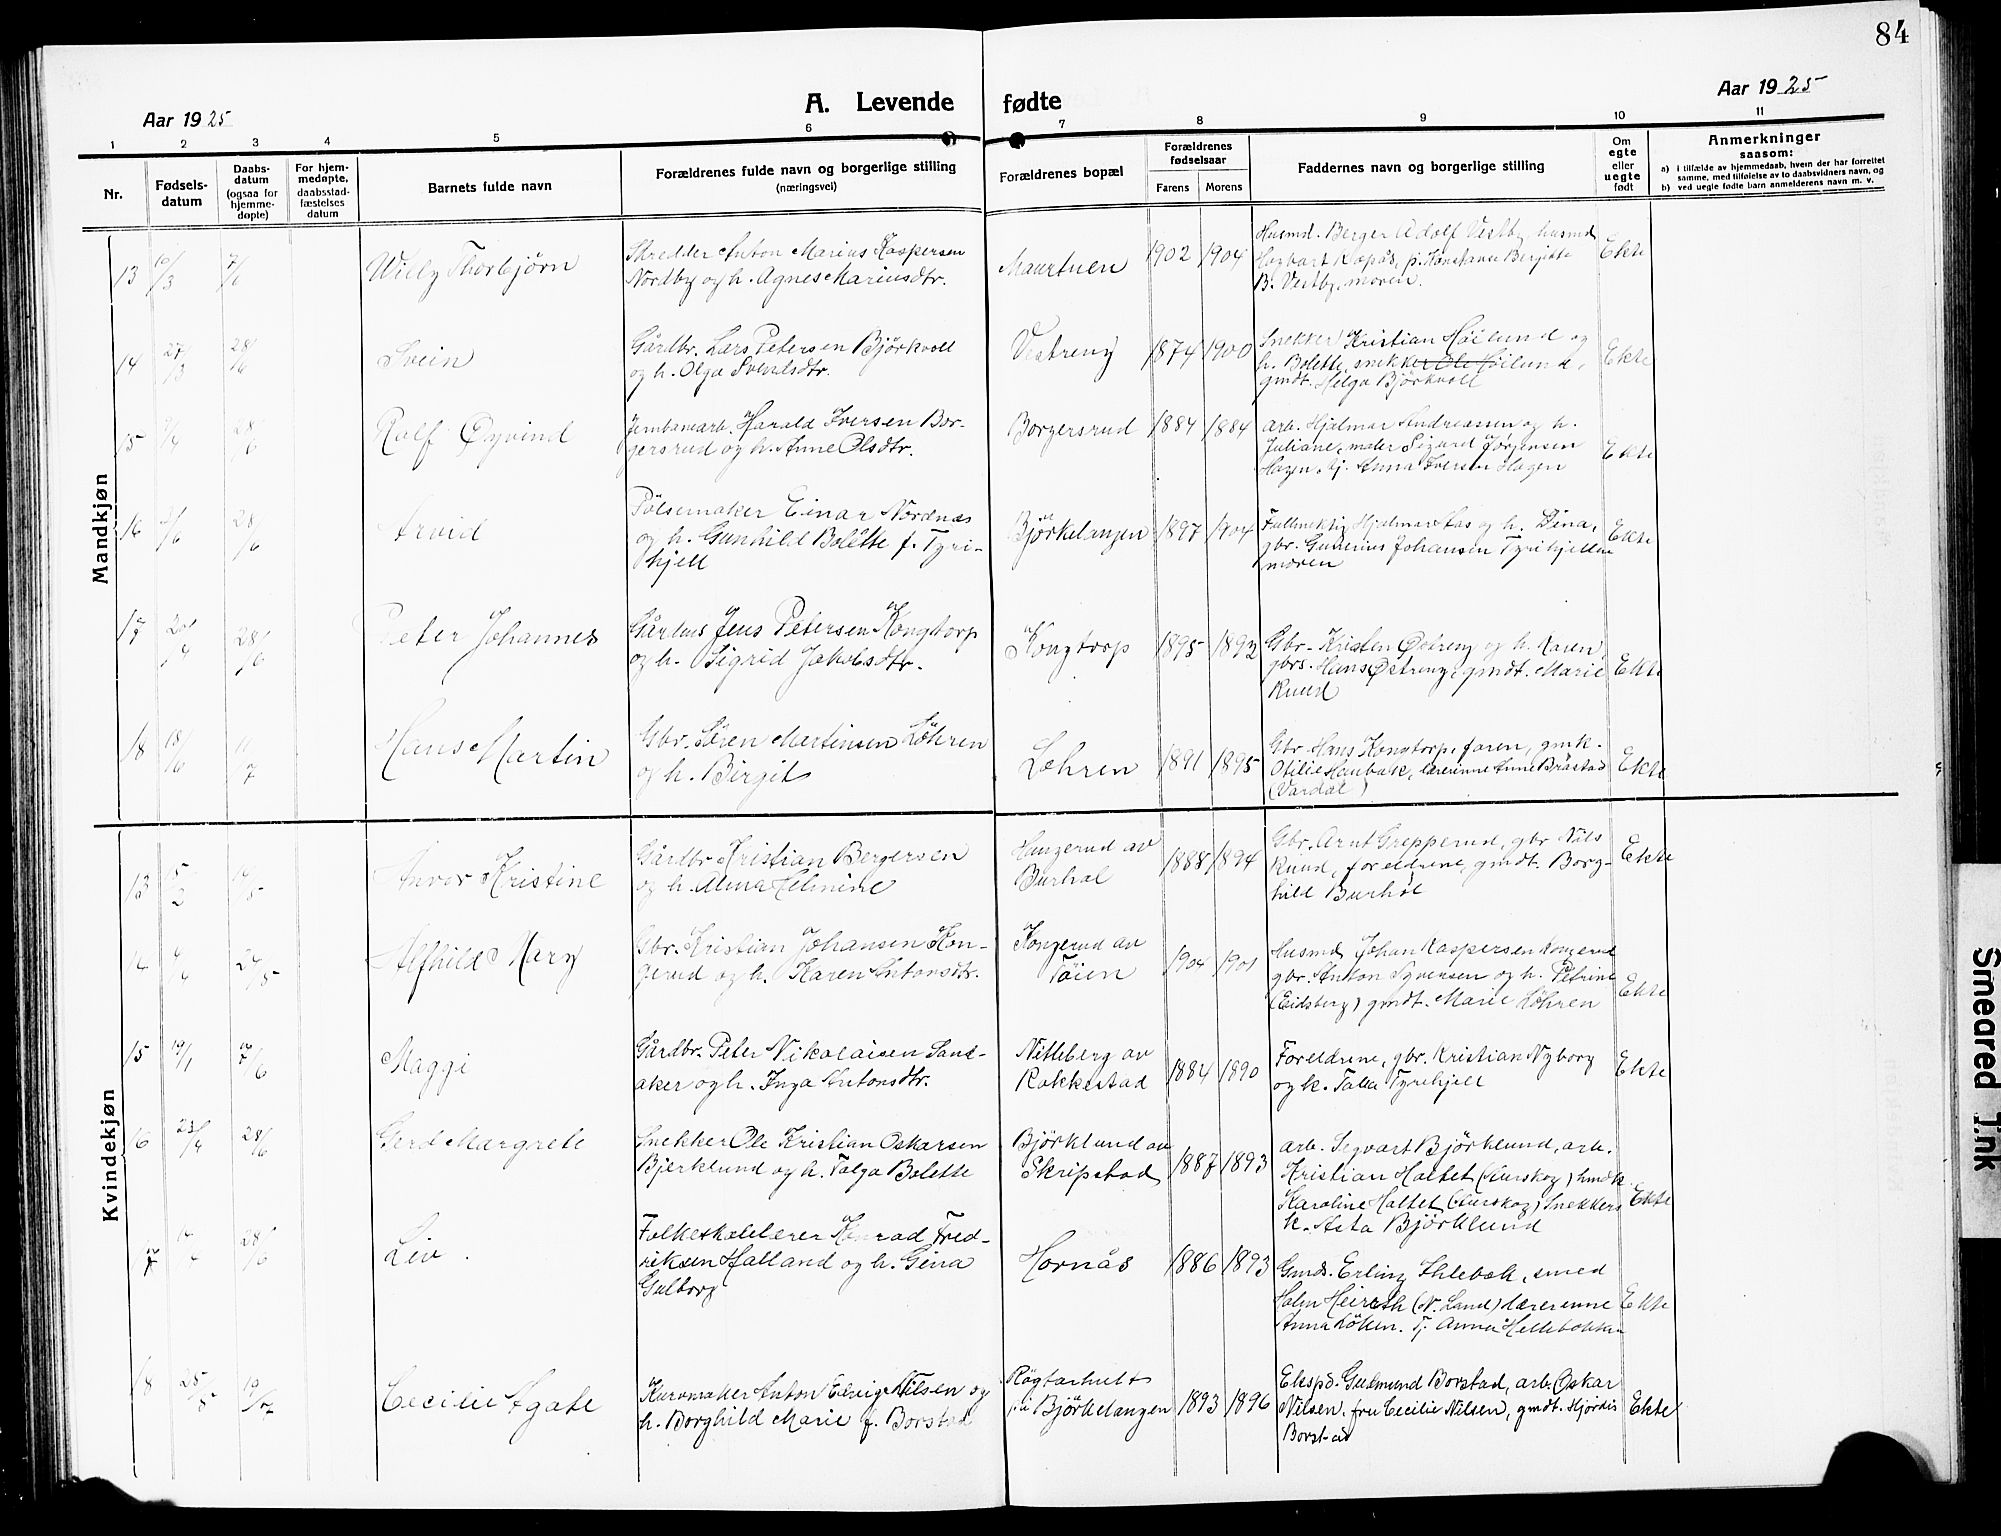 84
Aar 1925
A. Levende fødte
Aar 1925
1 2 3 4 5 6 7 8 9 10 11
Nr.
Fødsels-
datum
Daabs-
datum
(ogsaa for
hjemme-
døpte)
For hjem-
medøpte,
daabsstad-
fæstelses
datum
Barnets fulde navn
Forældrenes fulde navn og borgerlige stilling
(næringsvei)
Forældrenes bopæl
Forældrenes
fødselsaar
Farens Morens
Faddernes navn og borgerlige stilling
Om
egte
eller
uegte
født
Anmerkninger
saasom:
a) i tilfælde av hjemmedaab, hvem der har forrettet
samme, med tilføielse av to daabsvidners navn, og
b) ved uegte fødte barn anmelderens navn m. v.
Mandkjøn
13
Willy Thorbjørn
Skredder Anton Marius Kaspersen
Nordby og h. Agnes Mariusdtr.
Maurtuen
1902 1904
Husmd. Berger Adolf Vestby, husmd
Hagbart Kopås, p. Konstanse Bergitte
B. Vestby, moren.
Ekte
14 27/3 28/6
Svein
Gårdbr. Lars Petersen Björkvoll
og h. Olga Svendsdtr.
Vestreng
1874 1900
Snekker Kristian Höilund og
h. Bolette, snekker Ole Höilund,
gmdt. Helga Björkvoll
Ekte
15 28/6
Rolf Øyvind
Jernbanearb. Harald Iversen Bor-
gersrud og h. Anne Olsdtr.
Borgersrud
1884 1884
arb. Hjalmar Andreassen og h.
Juliane, maler Sigurd Jørgensen
Hagen, tj. Anna Iversen Hagen
Ekte
16 28/6
Arvid
Pölsemaker Einar Nordnæs
og h. Gunhild Bolette f. Tyri-
hjell
Björkelangen
1897 1904
Fullmektig Hjalmar Aas og h. Dina,
gbr. Gudenius Johansen Tyrihjell
moren
Ekte
17 28/6
Peter Johannes
Gårdms Jens Petersen Kongtorp
og h. Sigrid Jakobsdtr.
Kongtorp
1895 1892
Gbr. Kristen Østreng og h. Karen,
gbrs. Hans Østreng, gmdt. Marie
Ruud
Ekte
18 18/6
Hans Martin
Gbr. Søren Martinsen Löhren
og h. Birgit
Lohren
1891 1895
Gbr. Hans Kongtorp, faren, gmk.
Otilie Haubak, lærerinne Anne Bråstad
(Vardal)
Ekte
Kvindekjøn
13 5/2
Anvor Kristine
Gårdbr. Kristian Bergersen
og h. Alma Helmine
Haugerud av
Burhol
1888 1894
Gbr. Arnt Grepperud, gbr. Nils
Ruud, foreldrene, gmdt. Borg-
hild Burhol
Ekte
14
Alfhild Mary
Gbr. Kristian Johansen Kon-
gerud og h. Karen Antonsdtr.
Kongerud av
Töien
1904 1901
Husmd. Johan Kaspersen Kongerud
gbr. Anton Syversen og h. Petrine
(Eidsberg) gmdt. Marie Löhren
Ekte
15 19/1
Maggi
Gårdbr. Peter Nikolaisen Sand-
aker og h. Inga Antonsdtr.
Nitteberg av
Rakkestad
1884 1890
Foreldrene, gbr. Kristian Nyborg
og k. Talla Tyrihjell
Ekte
16 23/4 28/6
Gerd Margrete
Snekker Ole Kristian Oskarsen
Bjerklund og h. Valga Bolette
Björklund av
Skripstad
1887 1893
arb. Sigvart Björklund, arb.
Kristian Holtet (Aurskog) hmdk.
Karoline Holtet (Aurskog) Snekkers
k. Asta Björklund
Ekte
17 28/6
Liv.
Folkeskolelærer Konrad Fred-
riksen Halland og h. Gina
Gulborg
Hornås
1886 1893
Gmds. Erling Ihlebæk, smed
Holm Heiresh (N. Land) lærerinne
Anna Löken. Tj. Anna Hellebekken
Ekte
18
Cecilie Agate
Kurvmaker Anton Elvig Nilsen og
h. Borghild Marie f. Borstad
Røgtarhult
på Björkelangen
1893 1896
Eksp. Gudmund Borstad, arb. Oskar
Nilsen, fru Cecilie Nilsen, gmdt. Hjördis
Borstad
Ekte
Smeared Ink